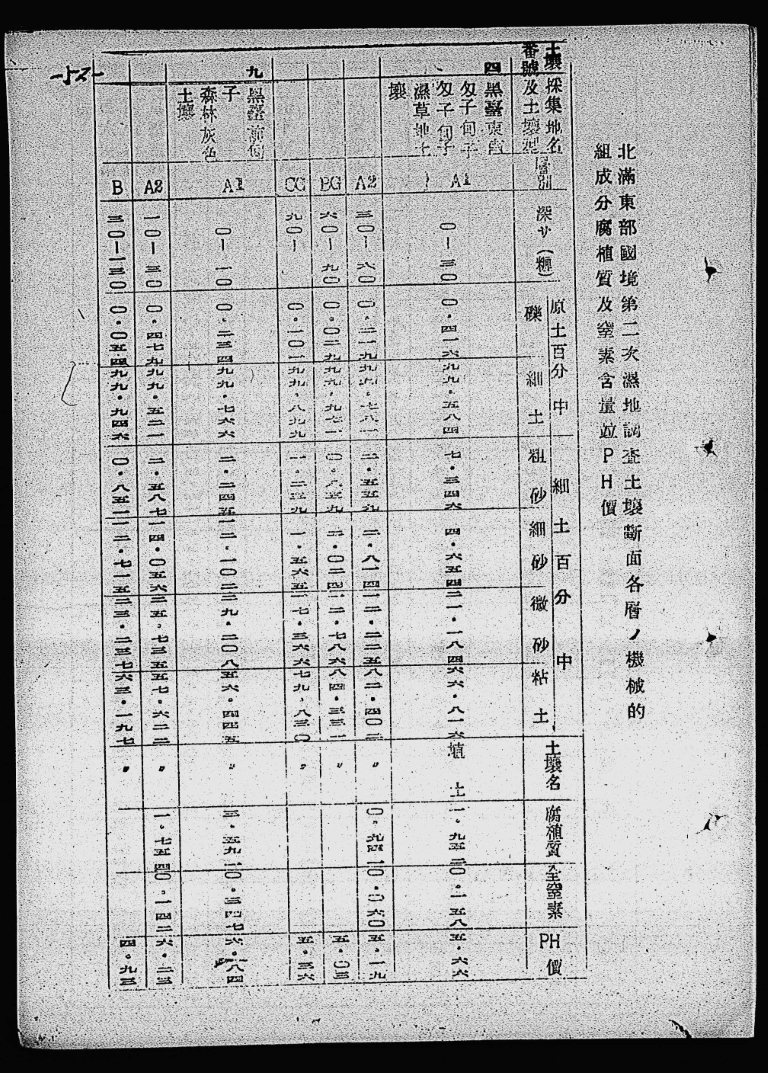 北滿東部國境第二次濕地調査土壤斷面各層ノ機械的
組成分腐植質及窒素含量竝PH價
土壤採集地名
番號及土壤型
層別
深サ(糎)
原土百分中
礫
細土
細土百分中
粗砂
細砂
微砂
粘土
土壤名
腐植質
全窒素
PH價
四
黑臺東南
匁子甸子
匁子甸子
濕草地土
壤
A1 〇—三〇 〇.四一六 九九.五八四 七.三四六 四.六五四 二一.一八四 六六.八一六 埴土 一.九五二 〇.一五八 五.六六
A2 三〇—六〇 〇.二一九 九九.七八一 二.五五九 二.八一四 一二.二二五 八二.四〇二 〃 〇.九四二 〇.〇六〇 五.一九
BG 六〇—九〇 〇.〇二九 九九.九七一 〇.八五九 二.〇二四 一二.七八六 八四.三三一 〃 五.〇三
CG 九〇— 〇.一〇一 九九.八九九 一.二三九 一.五六五 一七.三六六 七九.八三〇 〃 五.三六
九
黑臺前甸
子
森林灰色
土壤
A1 〇—一〇 〇.二三四 九九.七六六 二.二四五 一二.一〇二 二九.二〇八 五六.四四五 〃 三.五九一 〇.三四七 六.八四
A2 一〇—三〇 〇.四七九 九九.五二一 二.五八七 一四.〇五六 二五.七三五 五七.六二二 〃 一.七五四 〇.一四二 六.二三
B 三〇—一三〇 〇.〇五四 九九.九四六 〇.八五一 一二.七一五 二三.二三七 六三.一九七 〃 四.九三